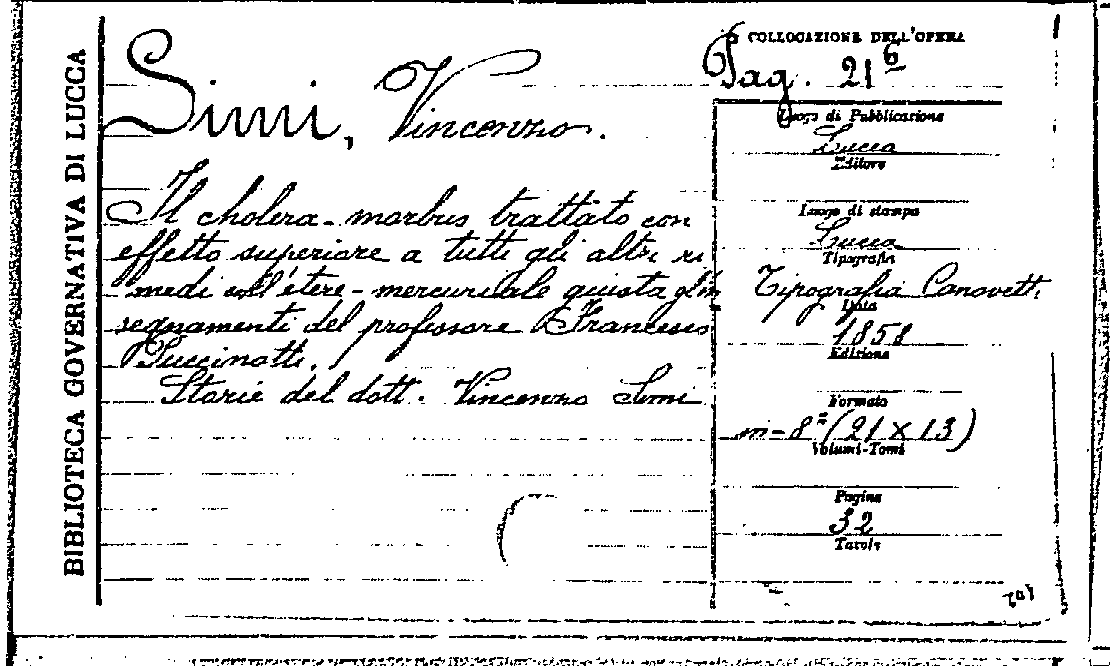 BIBLIOTECA GOVERNATIVA DI LUCCA
Simi, Vincenzo.
Il cholera-morbus trattato con
effetto superiore a tutti gli altri ri
medi coll'etere-mercuriale giusta gl'in
segnamenti del professore Francesco
Puccinotti.
Storie del dott. Vincenzo Simi
COLLOCAZIONE DELL'OPERA
Pag. 21 6
Luogo di Pubblicazione
Lucca
Editore
Luogo di stampa
Lucca
Tipografia
Tipografia Canovetti
Data
1858
Edizione
Formato
in-8° (21 x 13)
Volumi-Tomi
Pagine
32
Tavole